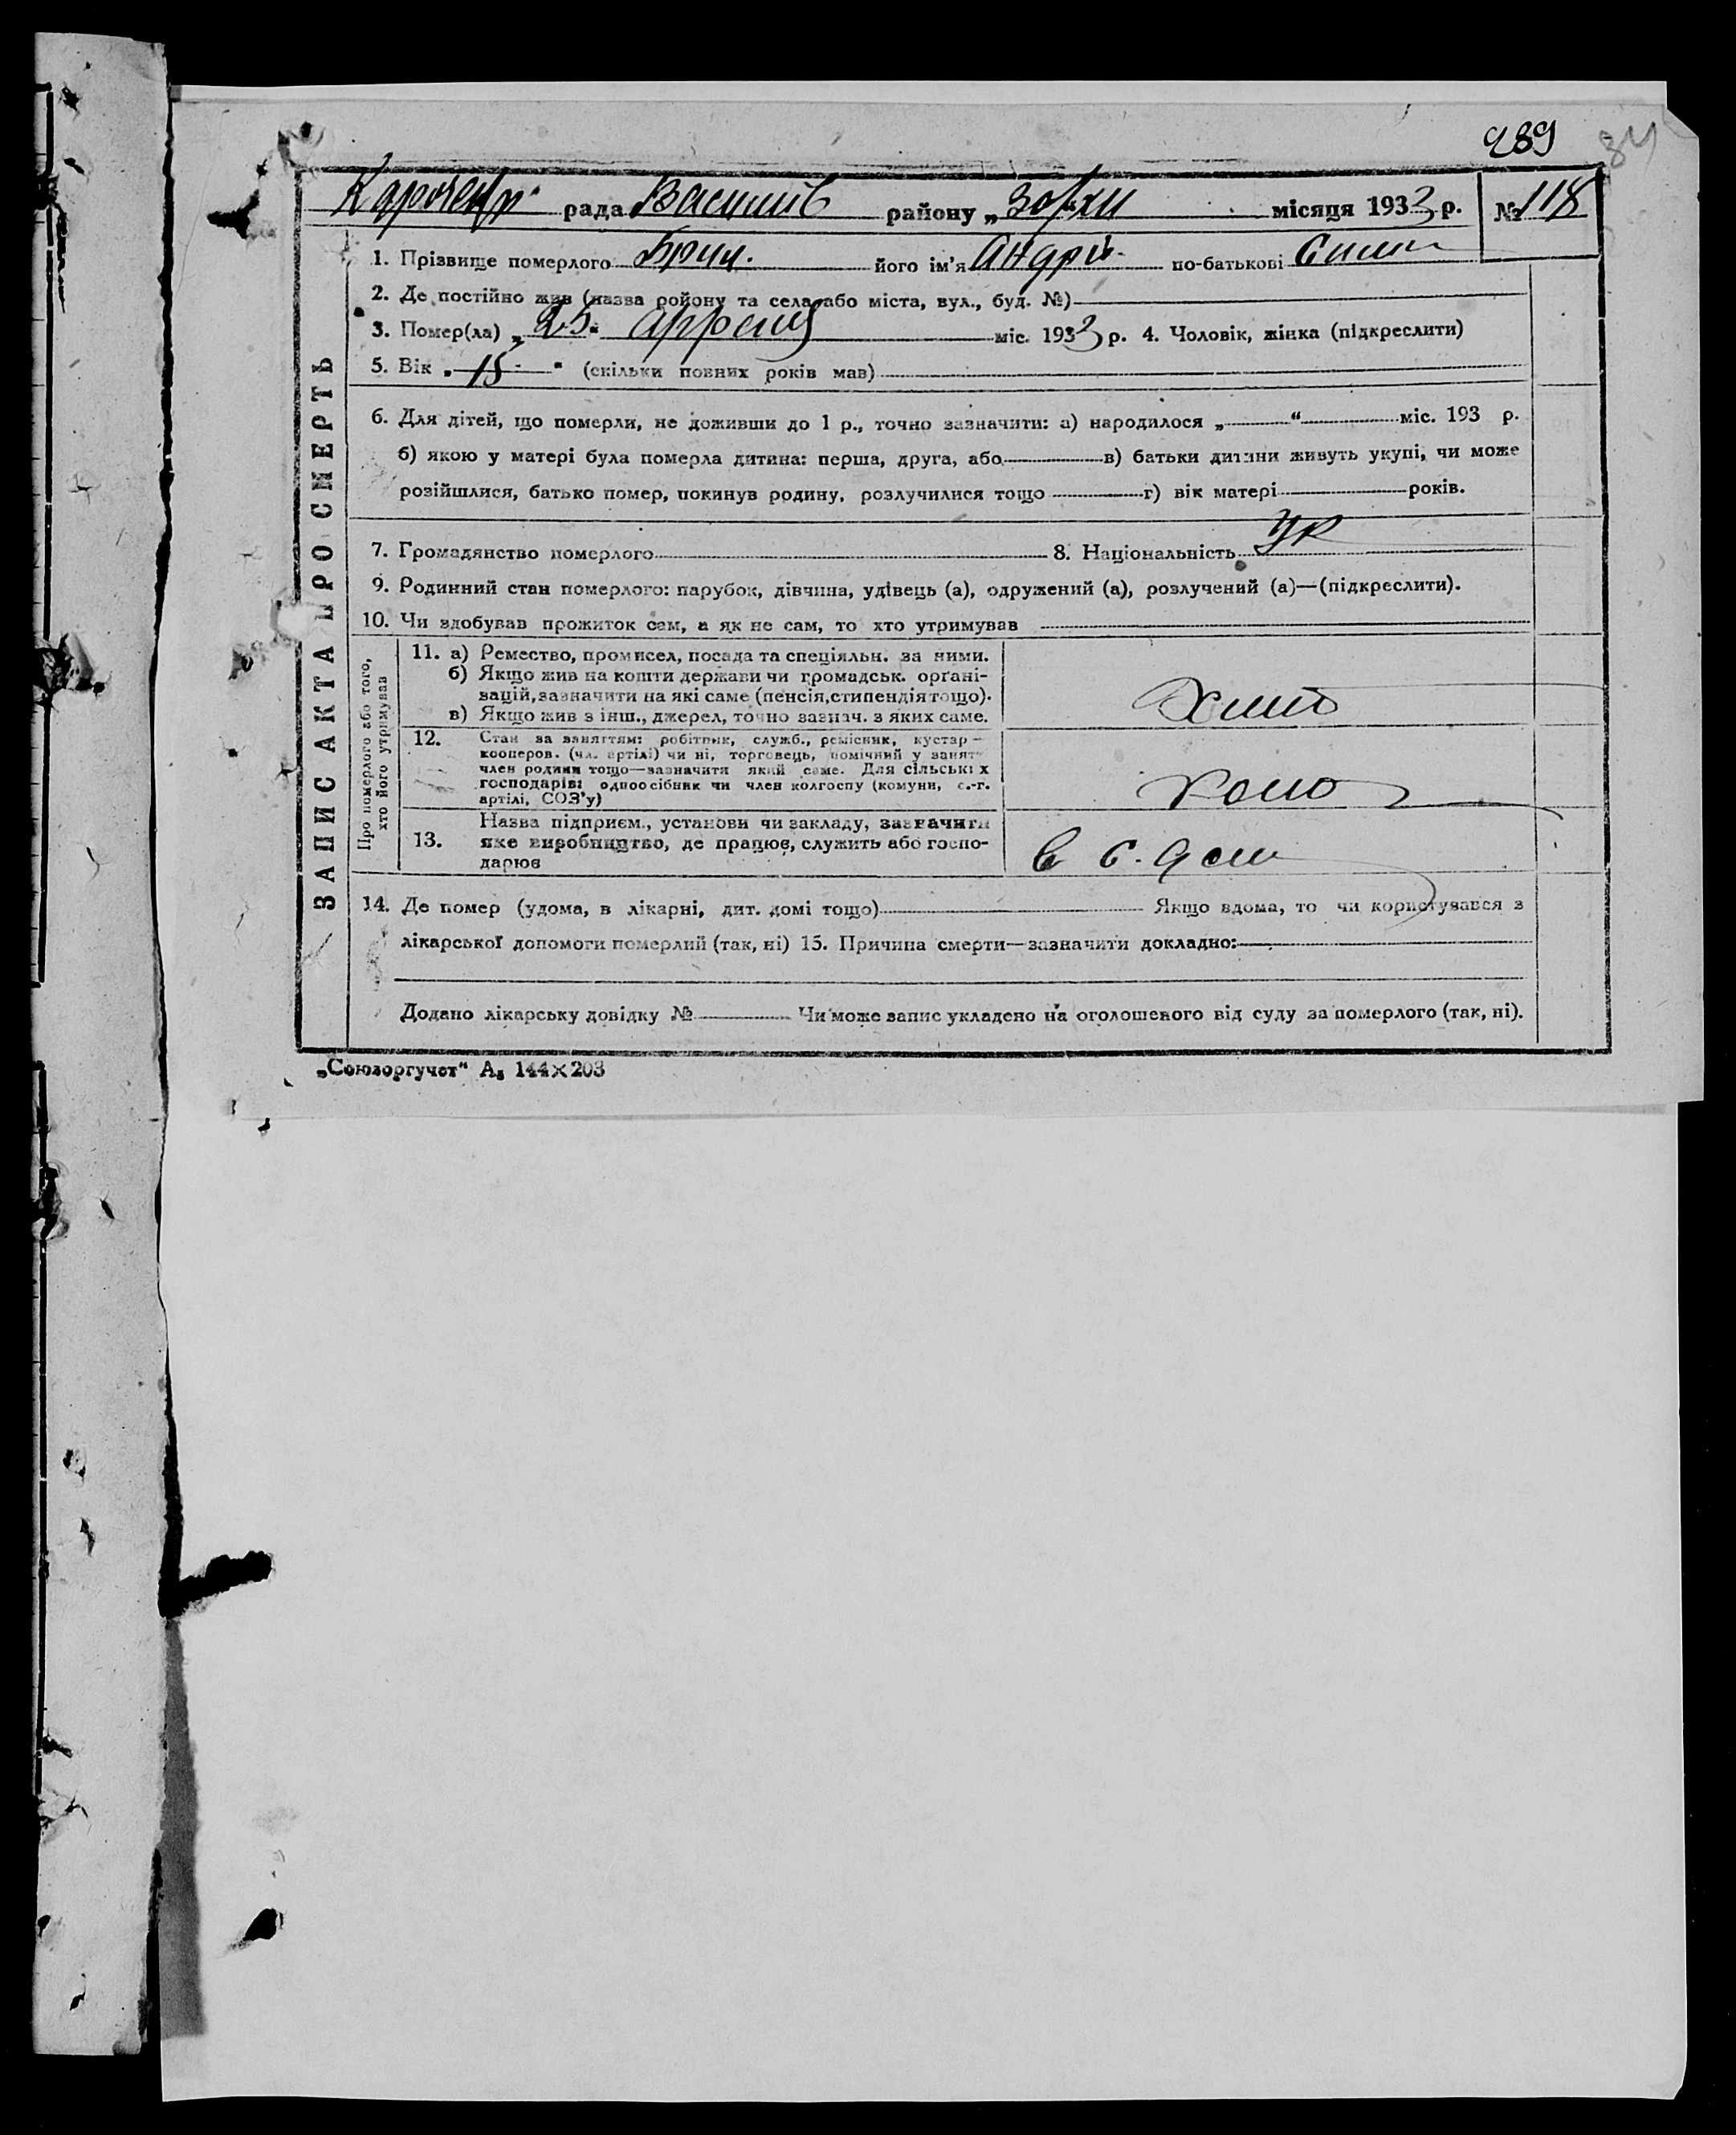 289 84
рада Васильів району „ 30/XII місяця 1933 р. № 118
1. Прізвище померлого Брич. його ім'я Андрій по-батькові
2. Де постійно жив (назва ройону та села або міста, вул., буд. №)
3. Помер(ла) „ 25 “ апреля міс. 1933 р. 4. Чоловік, жінка (підкреслити)
5. Вік „ 15 “ (скільки повних років мав)
6. Для дітей, що померли, не доживши до 1 р., точно зазначити: а) народилося „ “ міс. 193 р.
б) якою у матері була померла дитина: перша, друга, або в) батьки дитини живуть укупі, чи може
розійшлися, батько помер, покинув родину, розлучилися тощо г) вік матері років.
7. Громадянство померлого 8. Національність Ук
9. Родинний стан померлого: парубок, дівчина, удівець (а), одружений (а), розлучений (а)—(підкреслити).
10. Чи здобував прожиток сам, а як не сам, то хто утримував
ЗАПИС АКТА ПРО СМЕРТЬ
Про померлого або того,
хто його утримував
11. а) Ремество, промисел, посада та спеціяльн. за ними.
б) Якщо жив на кошти держави чи громадськ. орґані-
зацій, зазначити на які саме (пенсія, стипендія тощо).
в) Якщо жив з інш., джерел, точно зазнач. з яких саме.
12. Стан за заняттям: робітник, служб., ремісник, кустар—
кооперов. (чл. артілі) чи ні, торговець, помічний у занят.
член родини тощо—зазначити який саме. Для сільських
господарів: одноосібник чи член колгоспу (комуни, с.-г.
артілі, СОЗ'у)
13. Назва підприєм., установи чи закладу, зазначити
яке виробництво, де працює, служить або госпо-
дарює
14. Де помер (удома, в лікарні, дит. домі тощо) Якщо вдома, то чи користувався з
лікарської допомоги померлий (так, ні) 15. Причина смерти—зазначити докладно:
Додано лікарську довідку № Чи може запис укладено на оголошеного від суду за померлого (так, ні).
„Союзоргучет“ А₅ 144×203